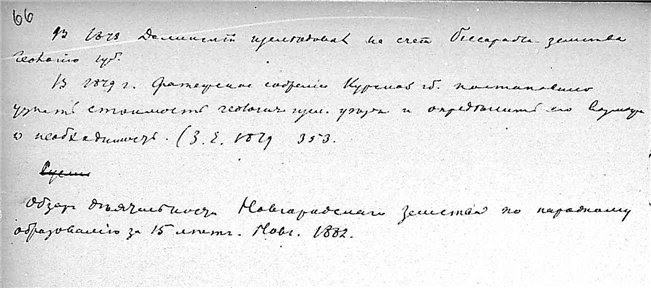 66
В 1878 Долинский изследовал на счет Бессарабс. земства
геологию губ.
В 1879 г. Фатежское собрание Курской гб. постановило
узнать стоимость геологич. изсл. уезда и определить его
и необходимость. (З. Е. 1879 353.
Обзор деятельности Новгородского земства по народному
образованию за 15 летъ. Новг. 1882.